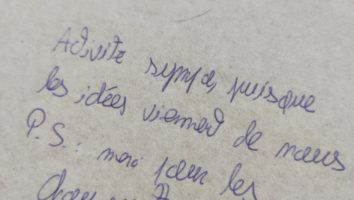 Activité sympa, puisque
les idées viennent de nous
P.S. : merci pour les